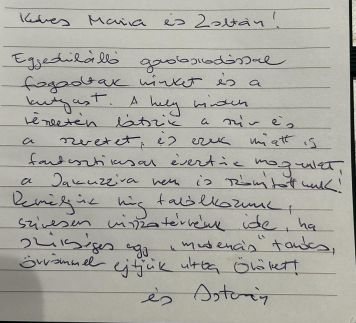 Kedves Marica és Zoltán!
Egyedülálló gondoskodással
fogadtak minket és a
kutyust. A hely minden
részletén látszik a szív és
a szeretet, és ezek miatt is
fantasztikusan éreztük magunkat
a Jakuzzira nem is számítottunk!
Reméljük még találkozunk,
szívesen visszatérnénk ide, ha
szükséges egy „medencés” tanács,
örömmel ejtjük útba Önöket!
és